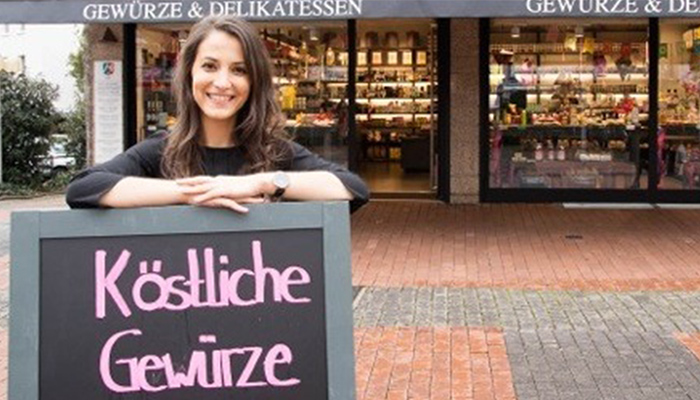 GEWÜRZE & DELIKATESSEN
GEWÜRZE & DE
Köstliche
Gewürze